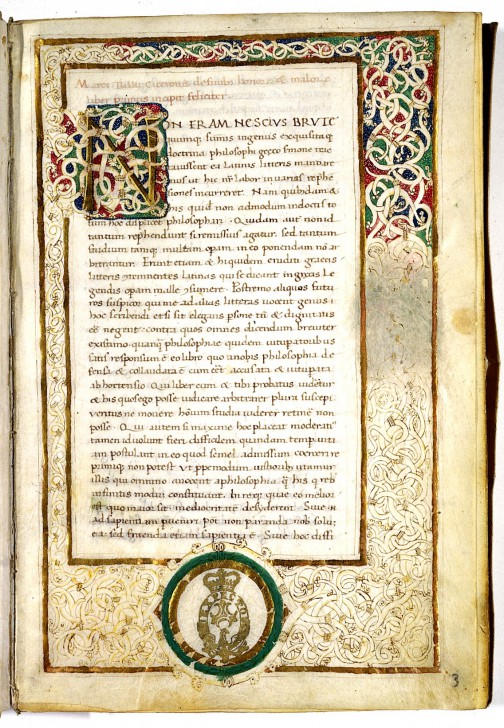 Marci Tullii Ciceronis de finibus bonorū & malorū
liber primus incipit feliciter
NON ERAM NESCIVS BRVTE
quumq; sumis ingeniis exquisitaq;
doctrina philosophi greco smone trac
tauissent ea latinis litteris mandare
mus ut hic nr̄ labor in uarias rephe
siones incurreret. Nam quibdam &
iis quid non admodum indoctis to
tum hoc displicet philosophari. Quidam aut non id
tantum rephendunt si remissius agatur. sed tantum
studium tamq; multam opam in eo ponendam nō ar
bitrantur. Erunt etiam & hi quidem eruditi graecis
litteris contemnentes latinas qui se dicant in grecis le
gendis opam malle 9sumere. Postremo aliquos futu
ros suspicor qui me ad alias litteras uocent genus
hoc scribendi etsi sit elegans psone tn̄ & dignitatis
eē negent. contra quos omnes dicendum breuiter
existimo. quamq̄ philosophiae quidem uituperatoribus
satis responsum ē eo libro quo a nobis philosophia de
fensa & collaudata ē cum eēt accusata & uitupata
ab hortensio. Qui liber cum & tibi probatus uidetur
& his quos ego posse iudicare arbitrarer plura suscepi
ueritus ne mouere hōinum studia uiderer retine non
posse. Qui autem si maxime hoc placeat moderati
tamen id uolunt fieri. difficilem quandam tempanti
am postulant in eo quod semel admissum coerceri re
primiq; non potest Vt ppemodum iustioribus utamur
illis qui omnino auocent a philosophia q̄ his q reb
infinitis modum constituant. In reaq; quae eo melior
sit quo maior sit mediocritatē desyderent. Siue in
ad sapientiam pueniri pot non paranda nob̄ solū
ea. sed fruenda etiam sapientia ē. Siue hoc diffi
3